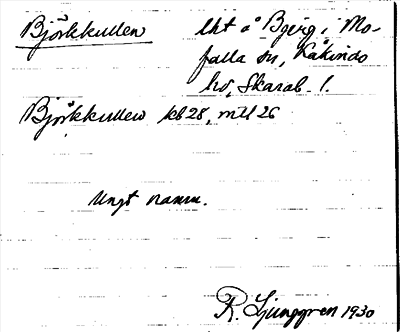 Björkkullen lht å Bjerg i Mo-
falla sn, Kåkinds
hd, Skarab. l.
Björkkullen kb 28, mtl 26
Ungt namn.
R. Ljunggren 1930